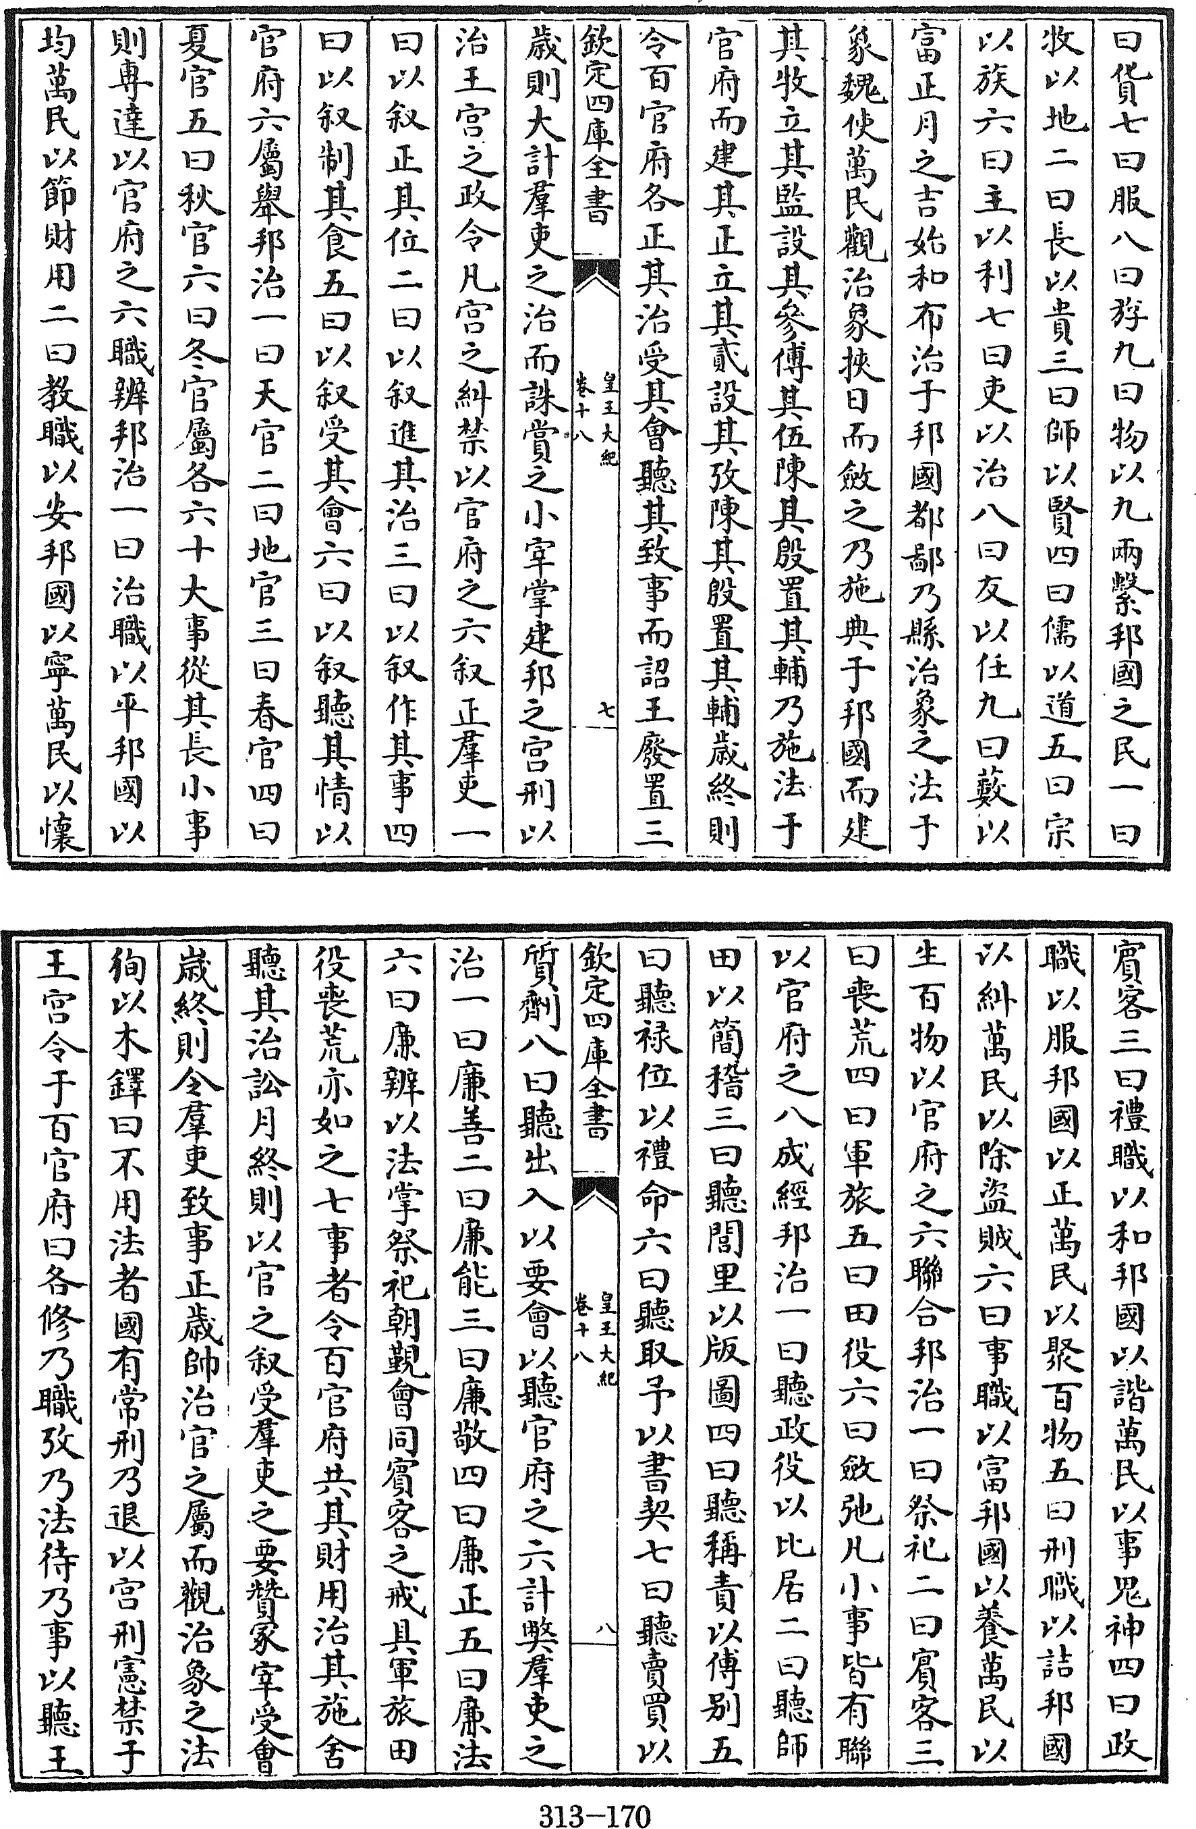 曰貨七曰服八曰斿九曰物以九兩繫邦國之民一曰
牧以地二曰長以貴三曰師以賢四曰儒以道五曰宗
以族六曰主以利七曰吏以治八曰友以任九曰藪以
富正月之吉始和布治于邦國都鄙乃縣治象之法于
象魏使萬民觀治象挾日而斂之乃施典于邦國而建
其牧立其監設其參傅其伍陳其殷置其輔乃施法于
官府而建其正立其貳設其攷陳其殷置其輔歳終則
令百官府各正其治受其會聽其致事而詔王廢置三
欽定四庫全書
皇王大紀
卷十八
七
歳則大計羣吏之治而誅賞之小宰掌建邦之宫刑以
治王宫之政令凡宫之糾禁以官府之六叙正羣吏一
曰以叙正其位二曰以叙進其治三曰以叙作其事四
曰以叙制其食五曰以叙受其會六曰以叙聽其情以
官府六屬舉邦治一曰天官二曰地官三曰春官四曰
夏官五曰秋官六曰冬官屬各六十大事從其長小事
則專達以官府之六職辨邦治一曰治職以平邦國以
均萬民以節財用二曰教職以安邦國以寧萬民以懷
賓客三曰禮職以和邦國以諧萬民以事鬼神四曰政
職以服邦國以正萬民以聚百物五曰刑職以詰邦國
以糾萬民以除盜賊六曰事職以富邦國以養萬民以
生百物以官府之六聯合邦治一曰祭祀二曰賓客三
曰喪荒四曰軍旅五曰田役六曰斂弛凡小事皆有聯
以官府之八成經邦治一曰聽政役以比居二曰聽師
田以簡稽三曰聽閭里以版圖四曰聽稱責以傅别五
曰聽禄位以禮命六曰聽取予以書契七曰聽賣買以
欽定四庫全書
皇王大紀
卷十八
八
質劑八曰聽出入以要會以聽官府之六計弊羣吏之
治一曰廉善二曰廉能三曰廉敬四曰廉正五曰廉法
六曰廉辨以法掌祭祀朝覲會同賓客之戒具軍旅田
役喪荒亦如之七事者令百官府共其財用治其施舍
聽其治訟月終則以官之叙受羣吏之要贊冢宰受會
歳終則令羣吏致事正歳帥治官之屬而觀治象之法
徇以木鐸曰不用法者國有常刑乃退以宫刑憲禁于
王宫令于百官府曰各修乃職攷乃法待乃事以聽王
313-170